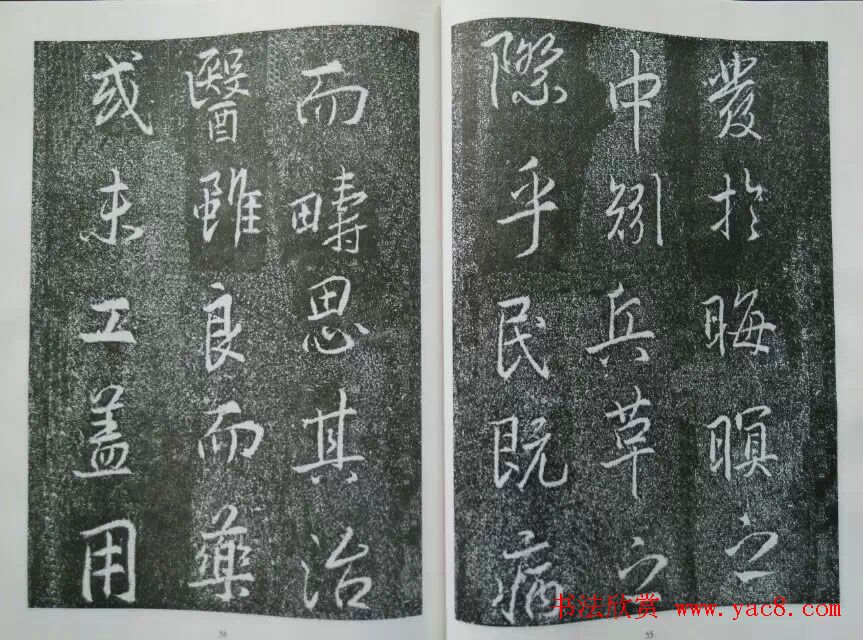 發於晦暝之
中矧兵革之
際乎民既病
而疇思其治
醫雖良而藥
或未工蓋用
56
55
书法欣赏 www.yac8.com